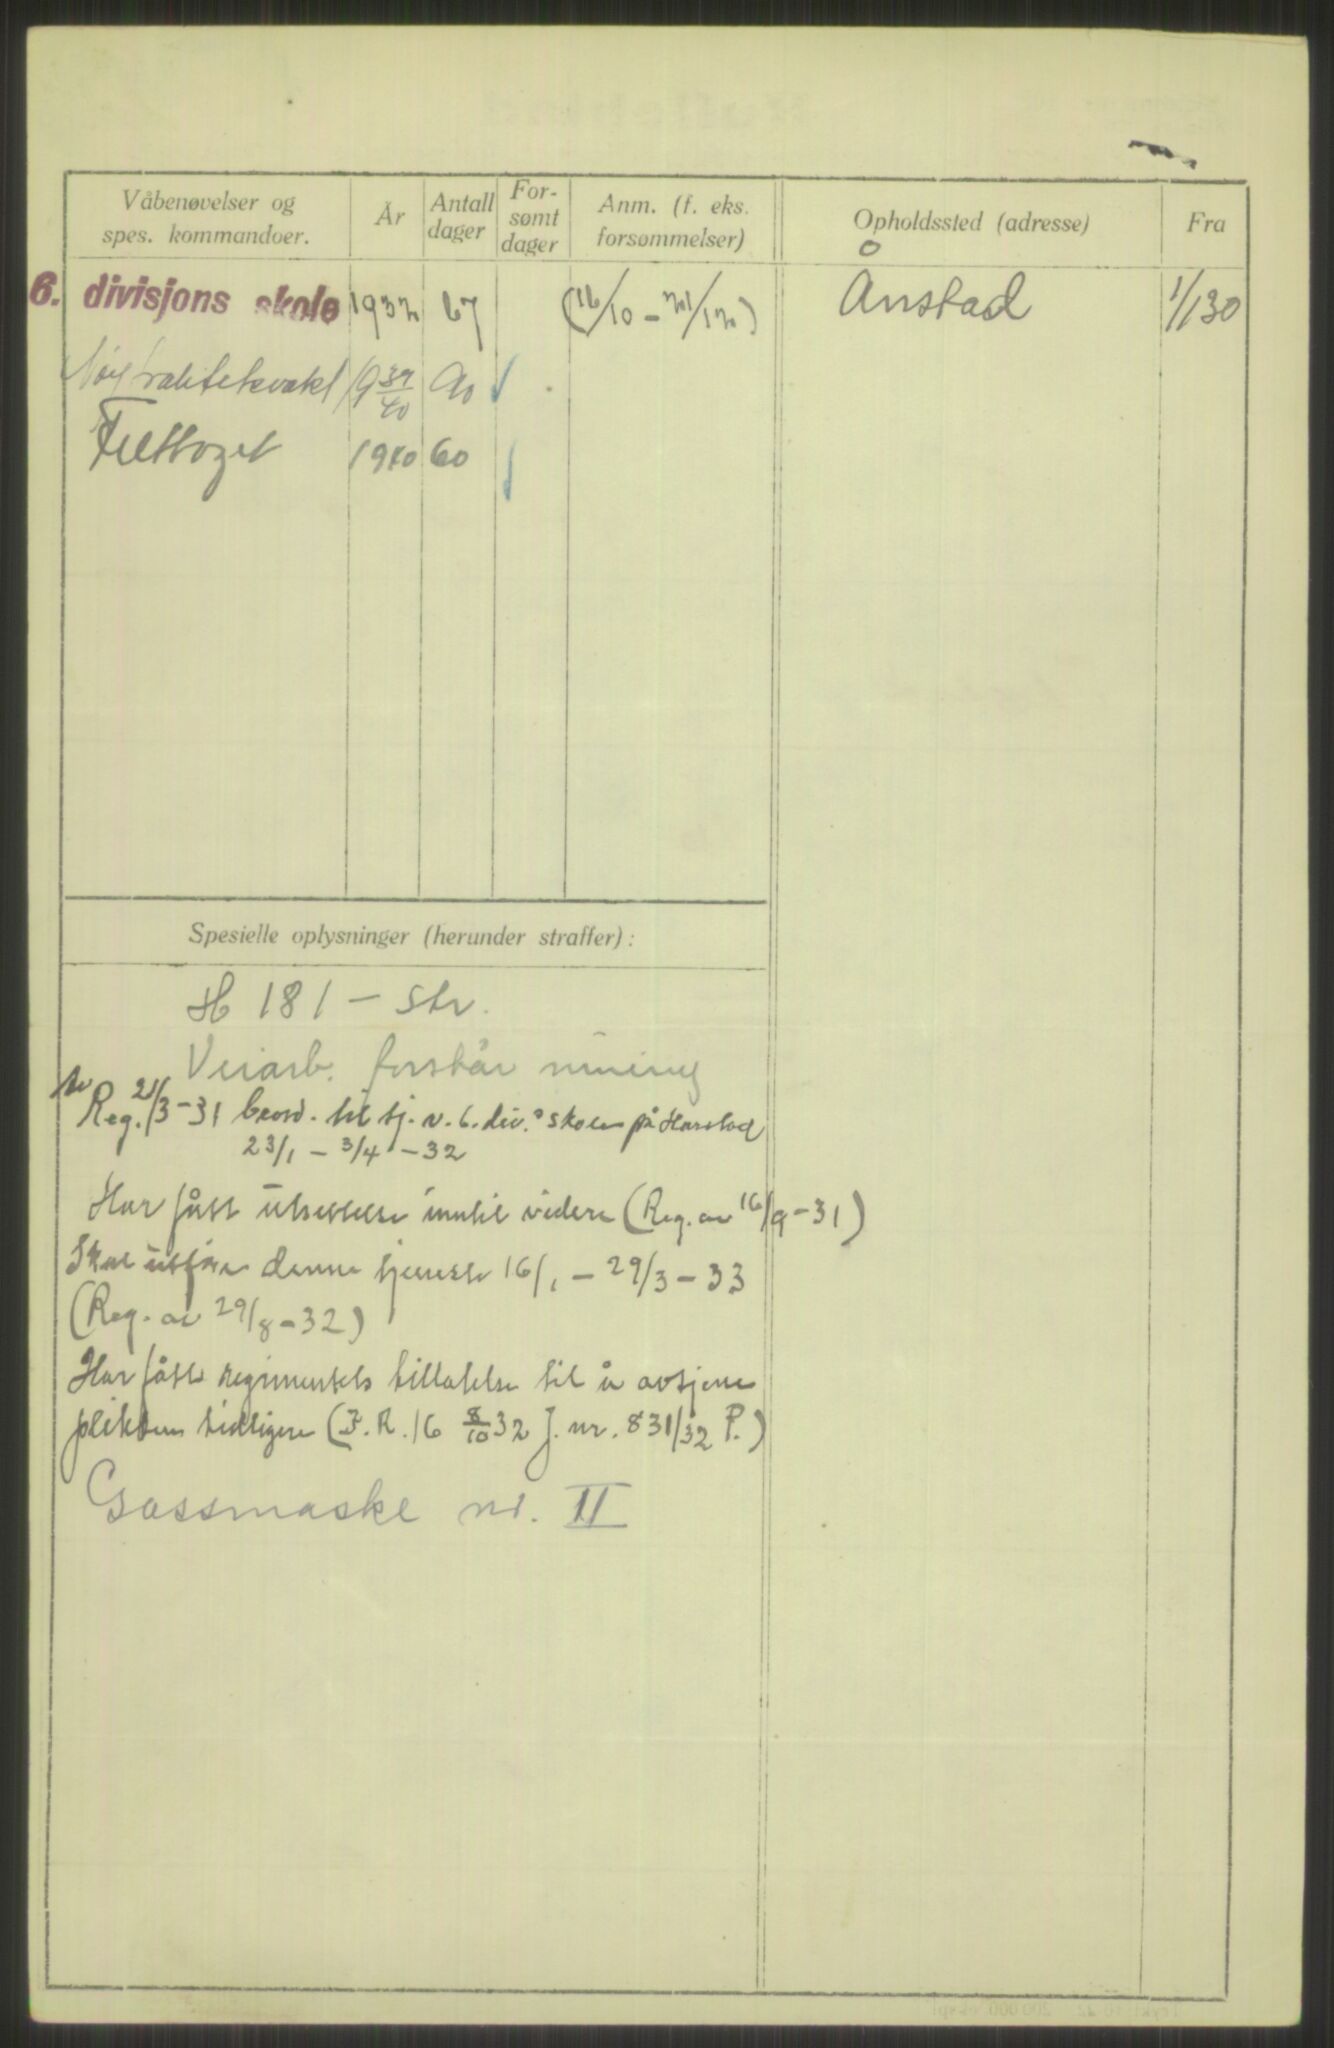 Våbenøvelser og spes. kommandoer. | År | Antall dager | For- sømt dager | Anm. (f. eks. forsømmelser) | Opholdssted (adresse) | Fra
6. divisjons skole | 1932 | 67 | | (16/10 - 21/12) | Ånstad | 1/1 30
Nøytralitetsvakt | 19 39/40 | 90
Felttoget | 1940 | 60
Spesielle oplysninger (herunder straffer):
H 181 - str.
Veiarb. forstår
Reg. 21/3-31 beord. til tj. v. 6. div.s skole på Harstad
23/1 - 3/4 - 32
Har fått utsettelse inntil videre (Reg. av 16/9-31)
Skal utføre denne tjeneste 16/1 - 29/3 - 33
(Reg. av 29/8-32)
Har fått regimentets tillatelse til å avtjene
plikten tidligere (I.R. 16 8/10 32 J. nr. 831/32 P.)
Gassmaske nr. II